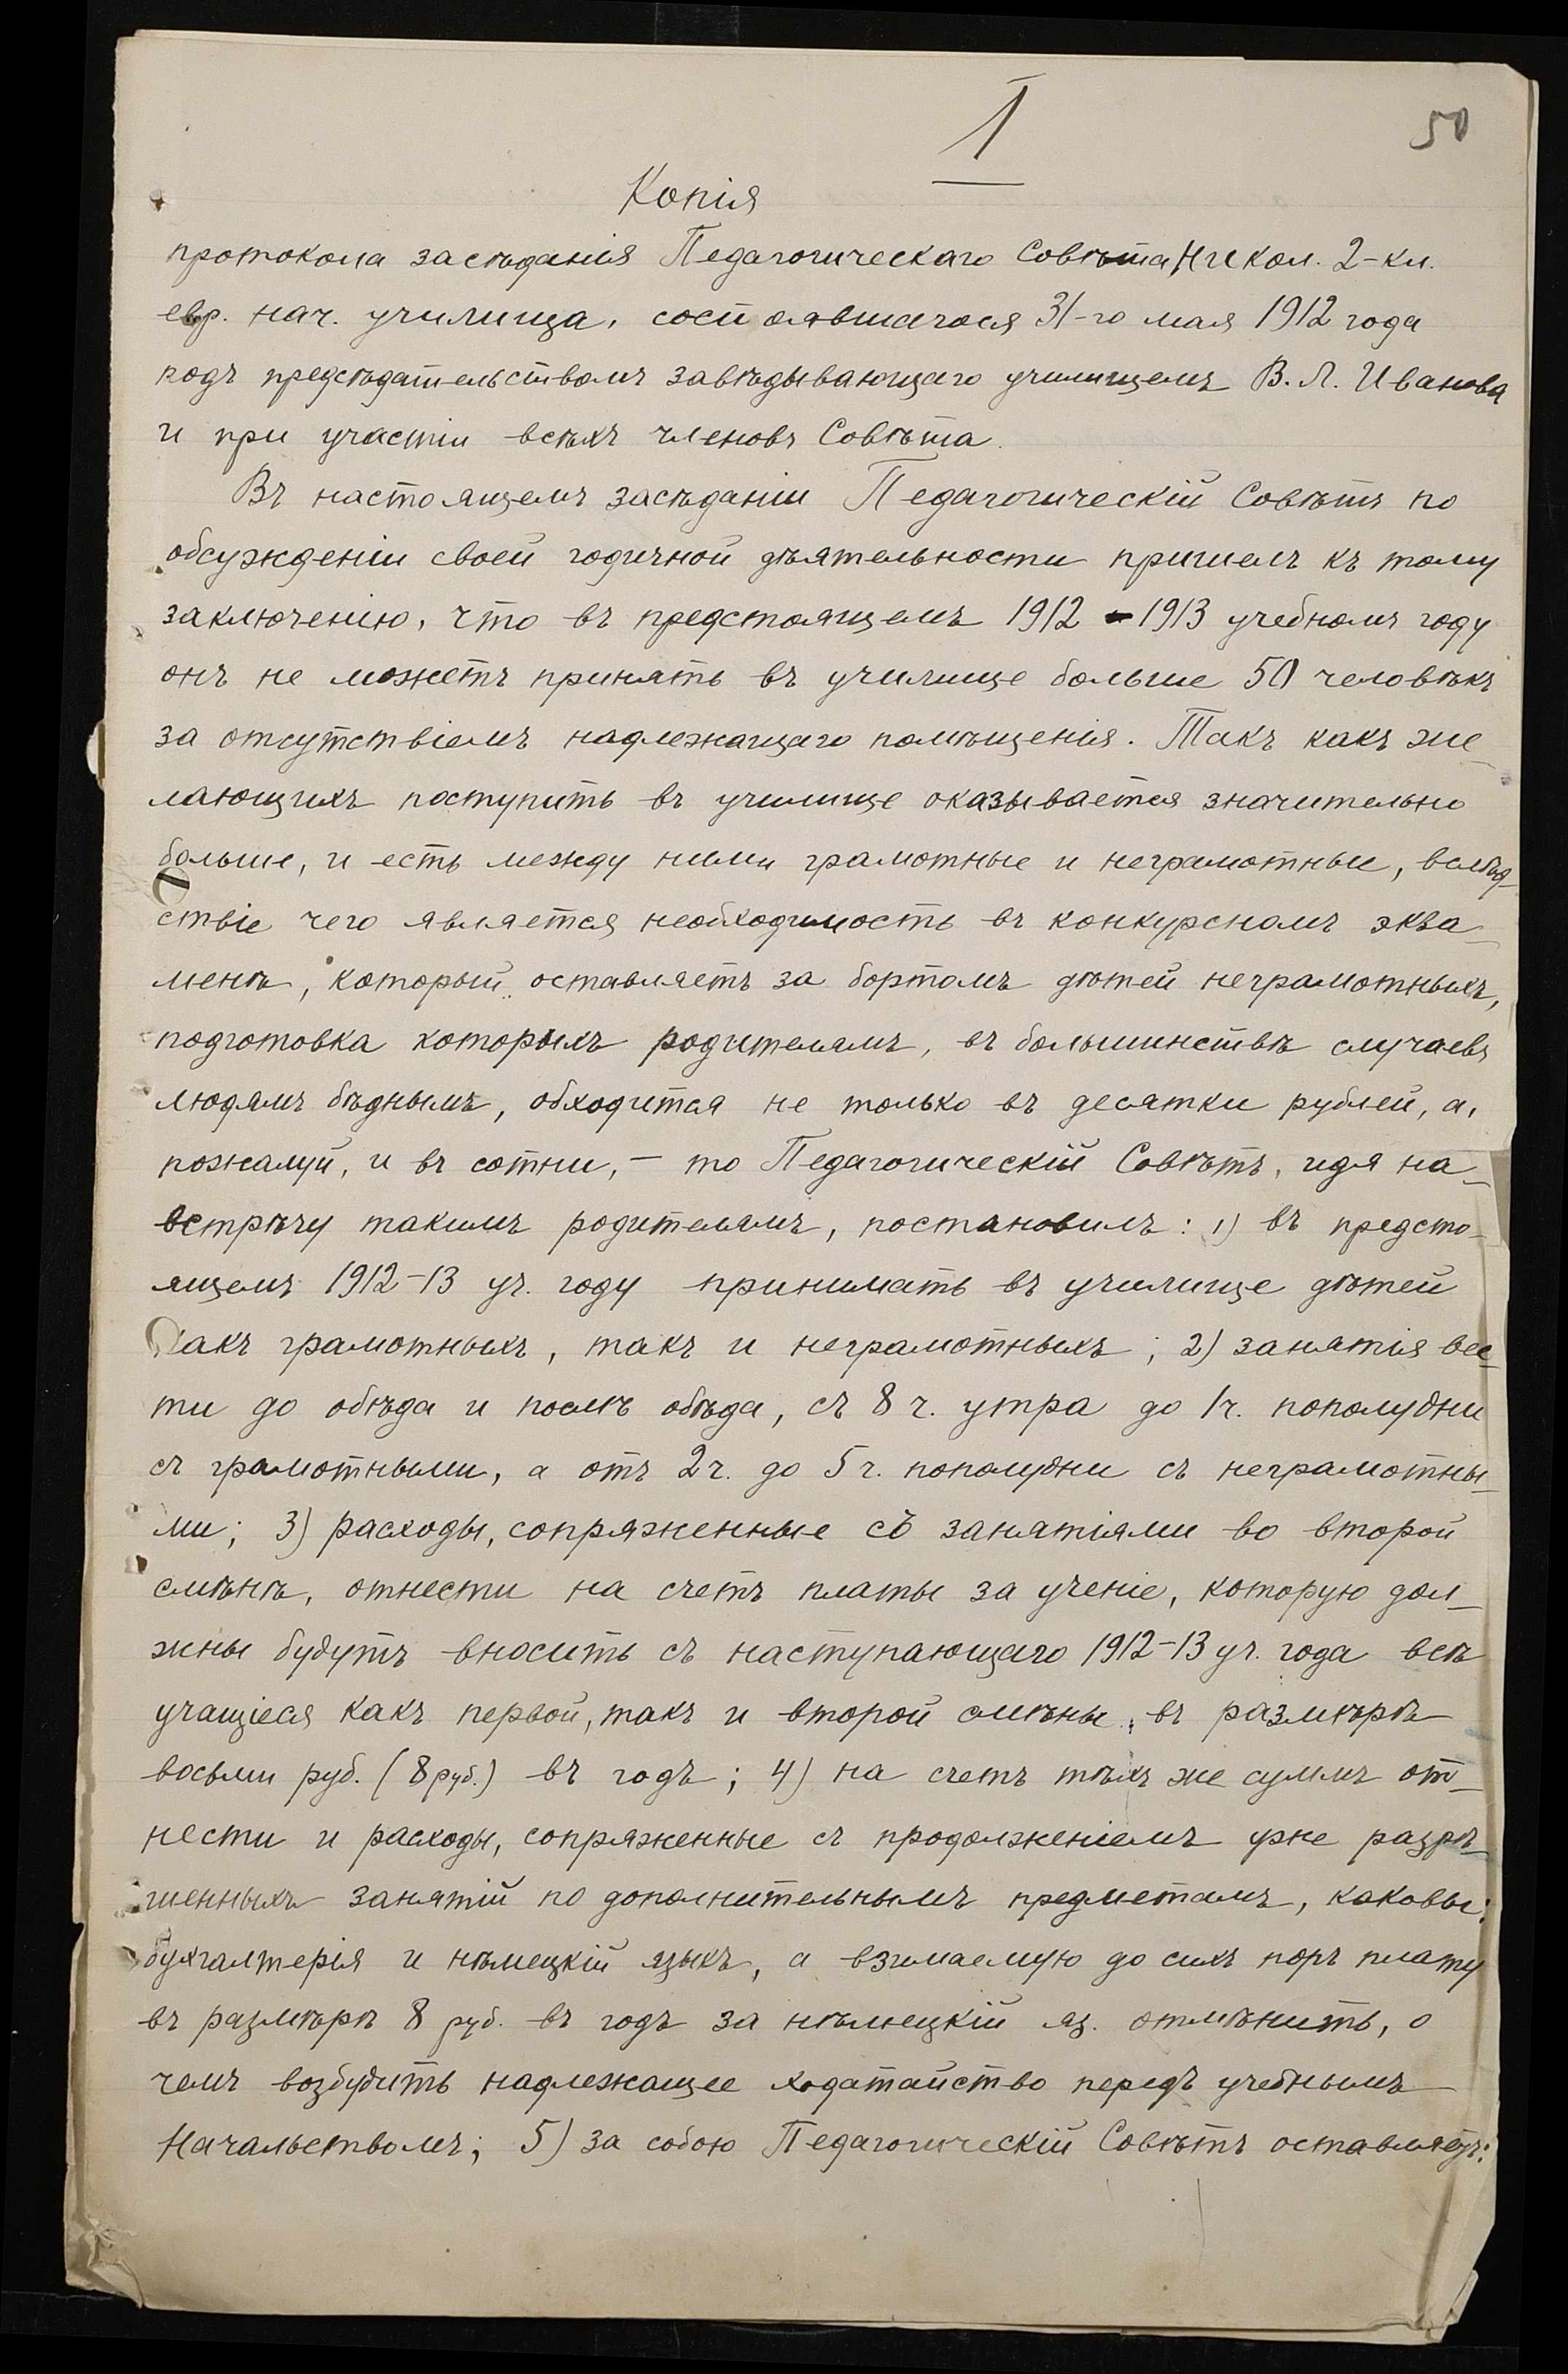 1
50
Копія
протокола засѣданія Педагогическаго Совѣта Никол. 2-кл.
евр. нач. училища, состоявшагося 31-го мая 1912 года
подъ предсѣдательствомъ завѣдывающаго училищемъ В. Л. Иванова
и при участіи всѣхъ членовъ Совѣта.
Въ настоящемъ засѣданіи Педагогическій Совѣтъ по
обсужденіи своей годичной дѣятельности пришелъ къ тому
заключенію, что въ предстоящемъ 1912-1913 учебномъ году
онъ не можетъ принять въ училище больше 50 человѣкъ
за отсутствіемъ надлежащаго помѣщенія. Такъ какъ же-
лающихъ поступить въ училище оказывается значительно
больше, и есть между ними грамотные и неграмотные, вслѣд-
ствіе чего является необходимость въ конкурсномъ экза-
менѣ, который оставляетъ за бортомъ дѣтей неграмотныхъ,
подготовка которыхъ родителямъ, въ большинствѣ случаевъ
людямъ бѣднымъ, обходится не только въ десятки рублей, а,
пожалуй, и въ сотни, - то Педагогическій Совѣтъ, идя на-
встрѣчу такимъ родителямъ, постановилъ: 1) въ предсто-
ящемъ 1912-13 уч. году принимать въ училище дѣтей
какъ грамотныхъ, такъ и неграмотныхъ; 2) занятія вес-
ти до обѣда и послѣ обѣда, съ 8 ч. утра до 1 ч. пополудни
съ грамотными, а отъ 2 ч. до 5 ч. пополудни съ неграмотны-
ми; 3) расходы, сопряженные съ занятіями во второй
смѣнѣ, отнести на счетъ платы за ученіе, которую дол-
жны будутъ вносить съ наступающаго 1912-13 уч. года всѣ
учащіеся какъ первой, такъ и второй смѣны, въ размѣрѣ
восьми руб. (8 руб.) въ годъ; 4) на счетъ тѣхъ же суммъ от-
нести и расходы, сопряженные съ продолженіемъ уже разрѣ-
шенныхъ занятій по дополнительнымъ предметамъ, каковы:
бухгалтерія и нѣмецкій языкъ, а взимаемую до сихъ поръ плату
въ размѣрѣ 8 руб. въ годъ за нѣмецкій яз. отмѣнить, о
чемъ возбудить надлежащее ходатайство передъ учебнымъ
Начальствомъ; 5) за собою Педагогическій Совѣтъ оставляетъ: